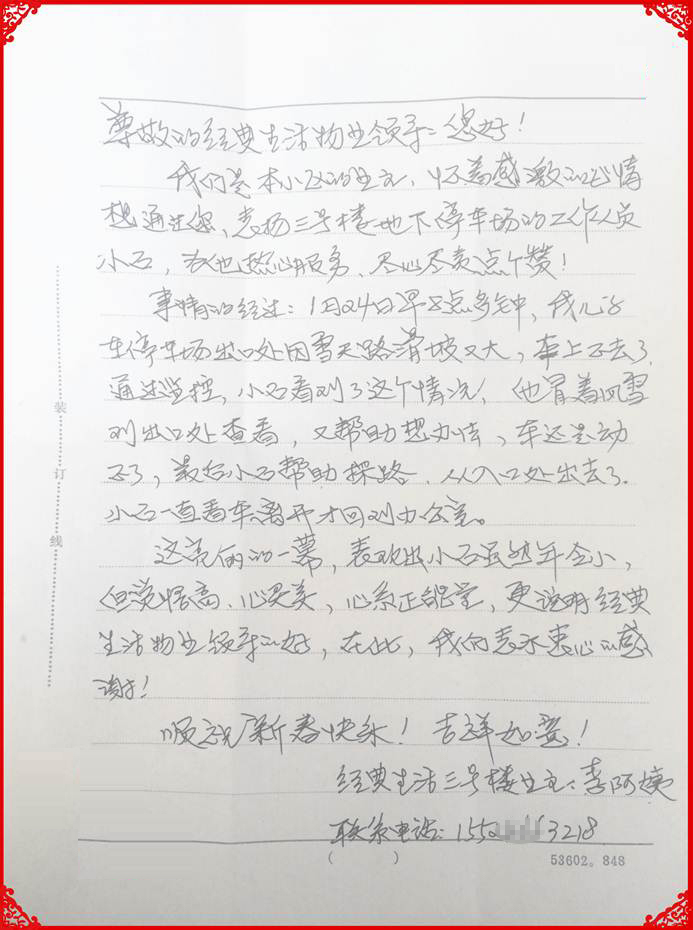 尊敬的经典生活物业领导：您好！
我们是本小区的业主，怀着感激的心情
想通过您，表扬三号楼地下停车场的工作人员
小石，为他热心服务，尽心尽责点个赞！
事情的经过：1月24日早8点多钟，我儿子
车停车场出口处因雪天路滑坡又大，车上不去了，
通过监控，小石看到了这个情况，他冒着风雪
到出口处查看，又帮助想办法，车还是动
不了，最后小石帮助探路，从入口处出去了。
小石一直看车离开才回到办公室。
这亮丽的一幕，表现出小石虽然年令小，
但觉悟高、心灵美，心系正能量，更说明经典
生活物业领导的好，在此，我们表示衷心的感
谢！
顺祝新春快乐！吉祥如意！
经典生活三号楼业主：李阿姨
联系电话：155 3218
装
订
线
( )
53602。848